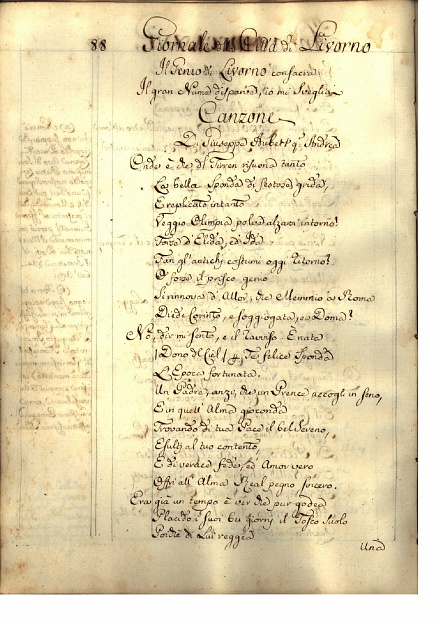 88 Giornale della Città di Livorno
Il Genio di Livorno consacra
Il gran Nume disponea, io mi
Canzone
Di Giuseppe Aubert q. Andrea
Onde è che del Tirren risuona tanto
La bella Sponda di festose grida,
E replicato intanto
Veggio Olimpia palea alzarsi intorno?
Forse d'Elida, ed Ida
Fan gl'antichi costumi oggi ritorno?
O forse il prisco genio
Si rinnova di Allor, che Memmio a Roma
Diede Corinto, e soggiogata, e Doma?
No, dir mi sento, e il ravviso. E nata
Dono del Ciel per Te felice Sponda
L'Epoca fortunata.
Un Padre, anzi, che un Prence accogli in seno,
E in quell'Alma gioconda
Trovando di tua Pace il bel sereno,
Esulti al tuo contento,
E di verace fede, ed Amor vero
Offri all'Alma Real pegno sincero.
Era già un tempo è ver che pur godea
Placidi i suoi bei giorni il Tosco Suolo
Poichè di Lui reggea
Una